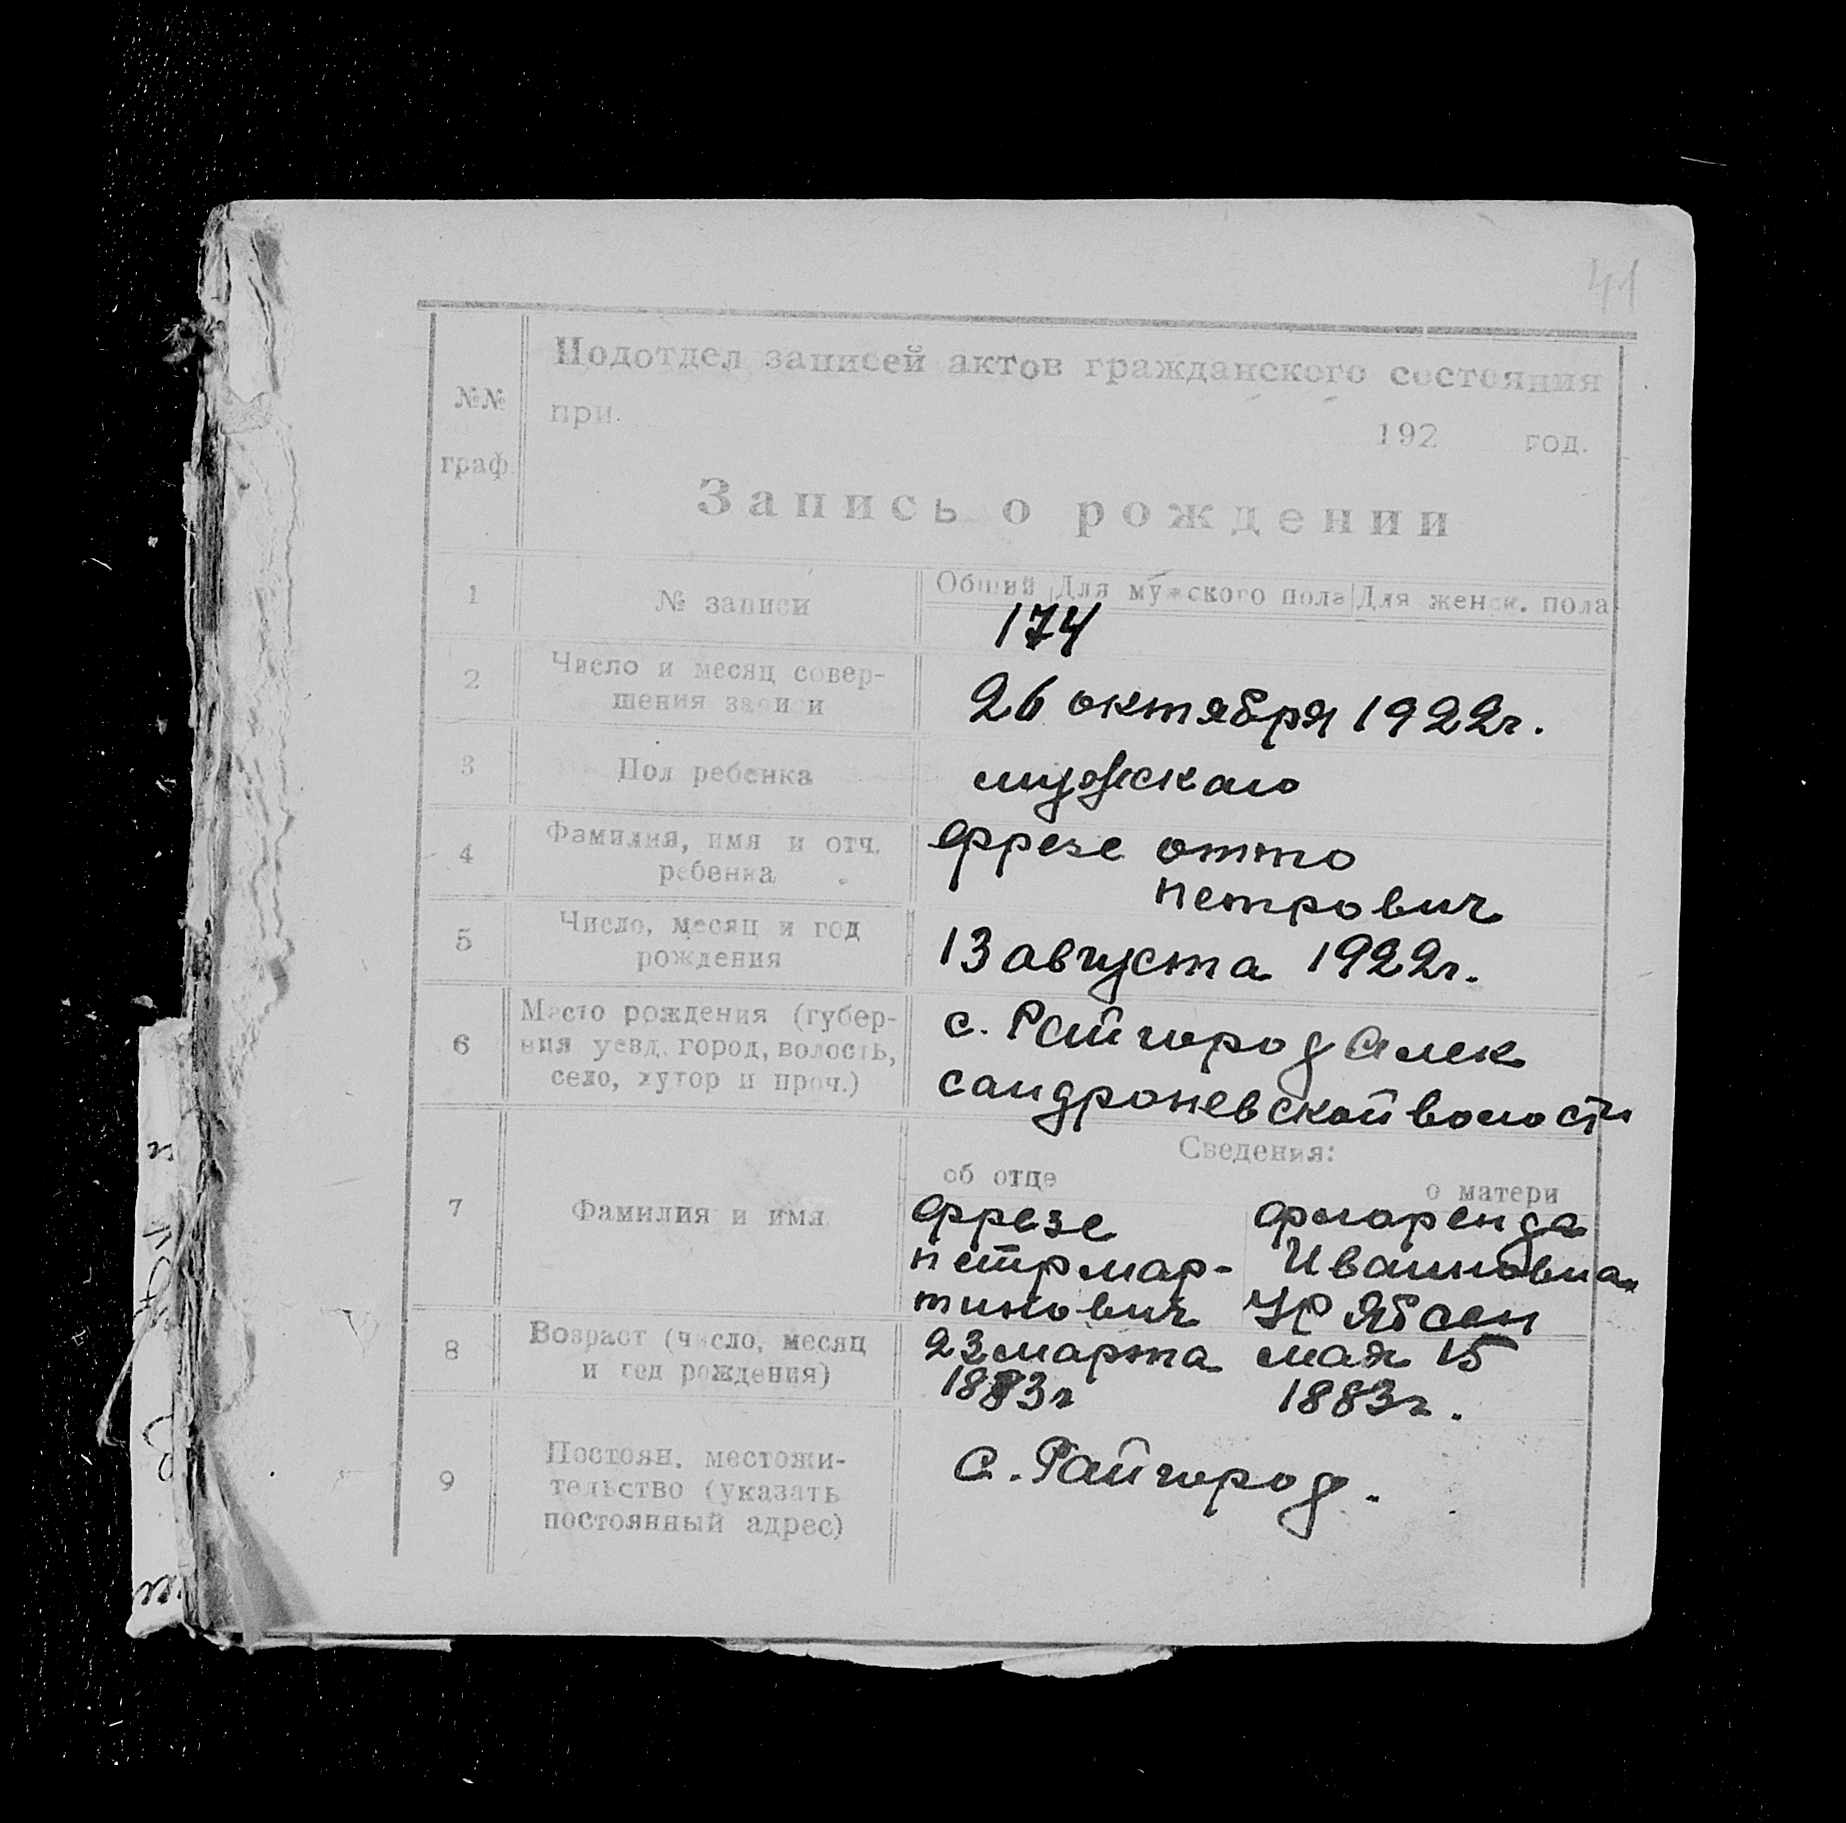 41
Подотдел записей актов гражданского состояния
№№
при
192 год.
граф.
Запись о рождении
Общий Для мужского пола Для женск. пола
1 № записи 174
2 Число и месяц совер-
шения записи 26 октября 1922г.
3 Пол ребенка мужскаго
4 Фамилия, имя и отч. Фрезе Отто
ребенка Петрович
5 Число, месяц и год
рождения 13 августа 1922г.
6 Место рождения (губер- с. Райгород Алек
ния уезд. город, волость,
село, хутор и проч.) сандроневской волости
Сведения:
об отце о матери
7 Фамилия и имя Фрезе
Петр Мар- Ивановна
тинович
8 Возраст (число, месяц 23 марта мая 15
и год рождения) 1883г 1883г.
9 Постоян. местожи- С. Райгород.
тельство (указать
постоянный адрес)